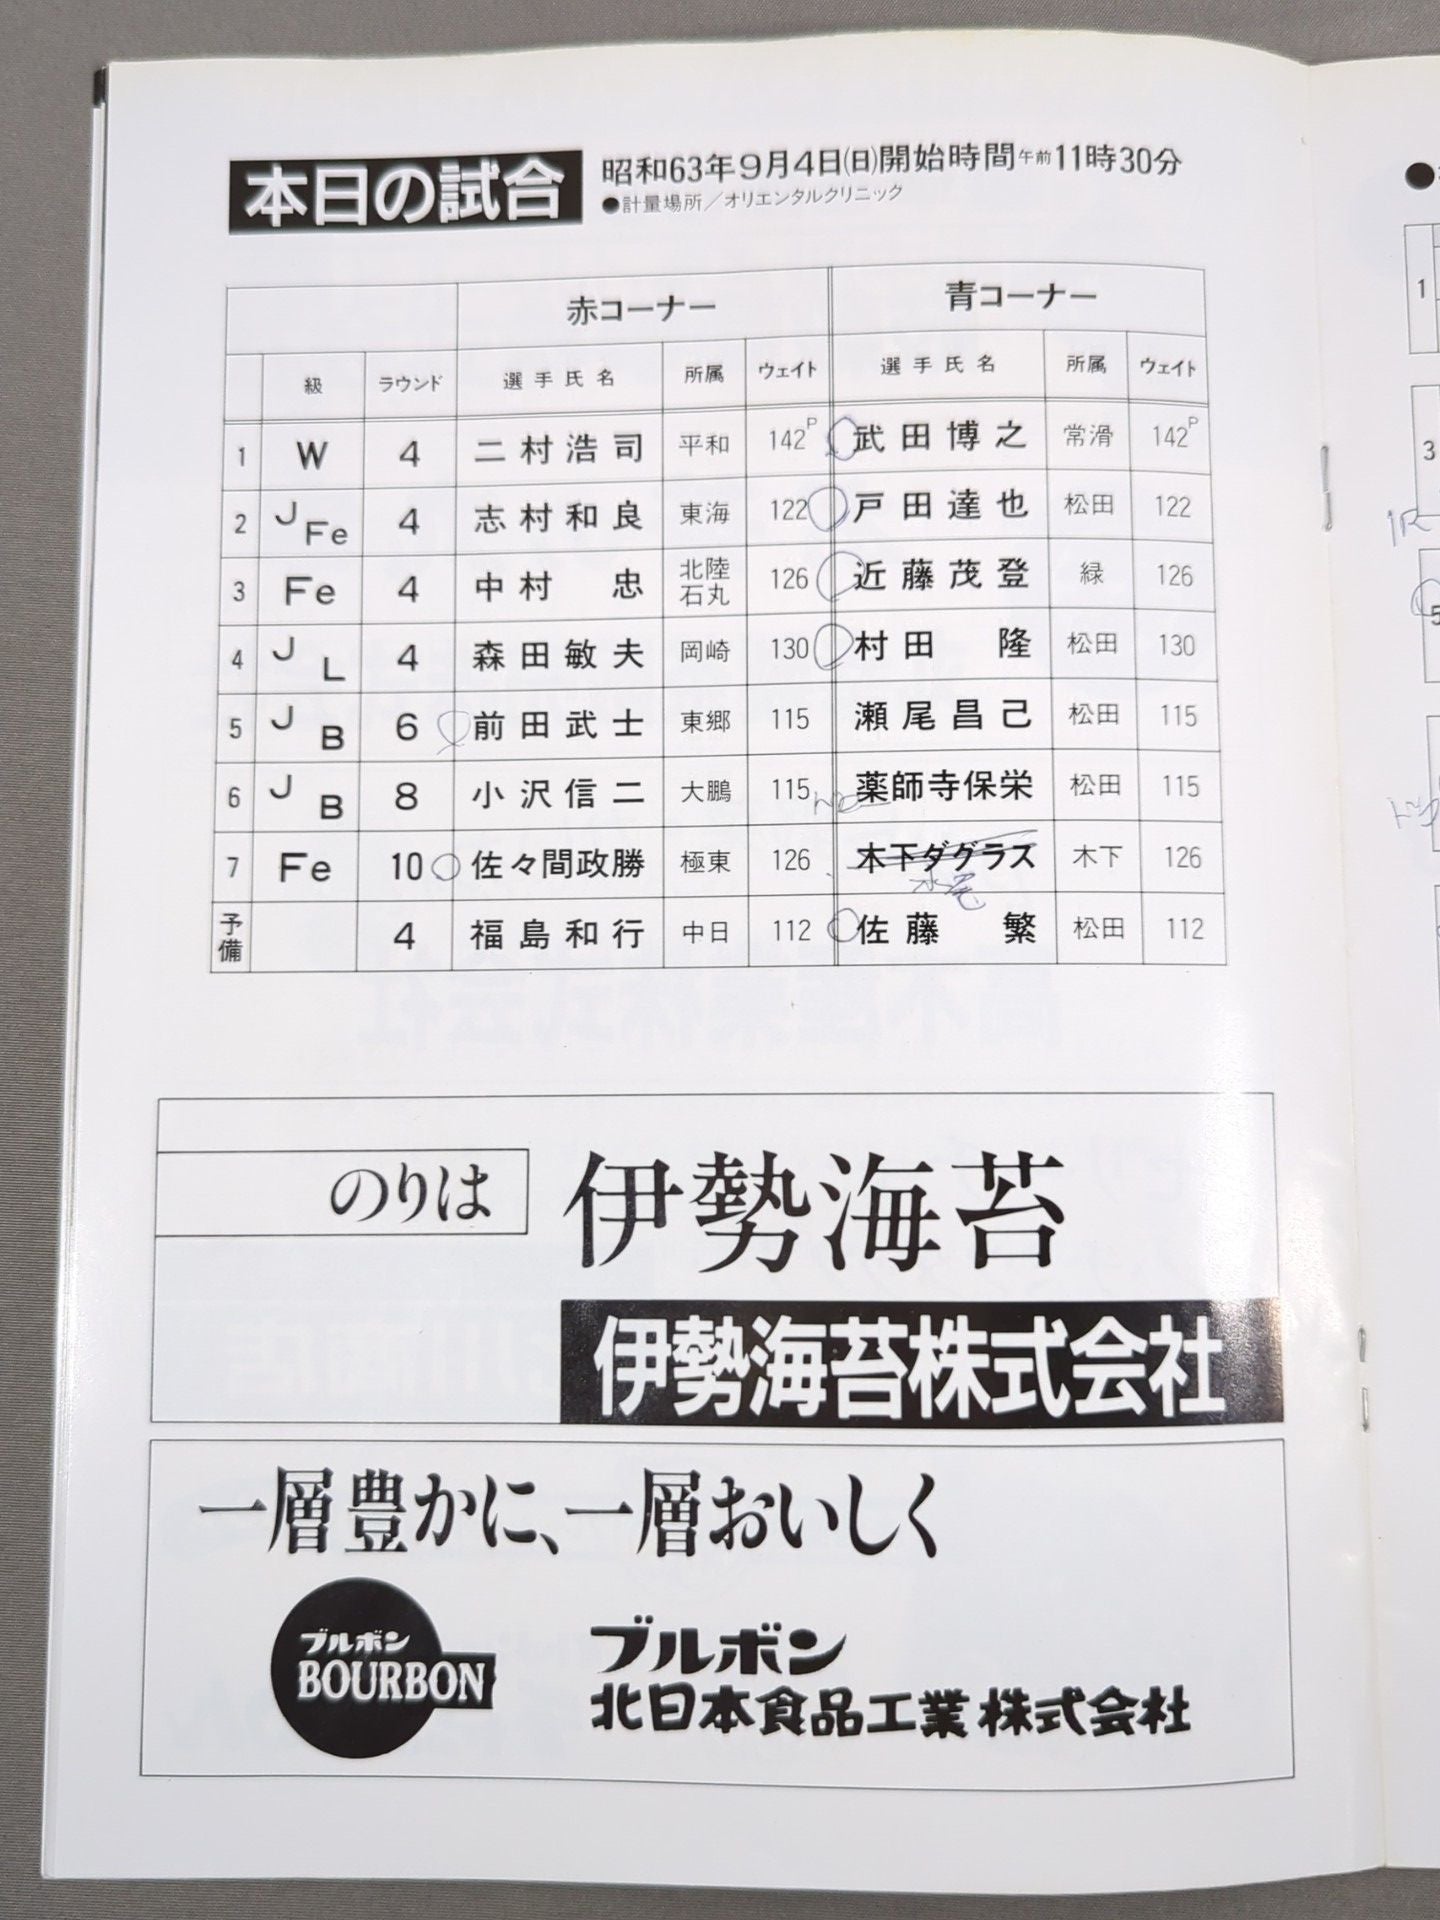 本日の試合 昭和63年9月4日(日)開始時間午前11時30分
●計量場所／オリエンタルクリニック
赤コーナー 青コーナー
級 ラウンド 選手氏名 所属 ウェイト 選手氏名 所属 ウェイト
1 W 4 二村浩司 平和 142P 武田博之 常滑 142P
2 JFe 4 志村和良 東海 122 戸田達也 松田 122
3 Fe 4 中村忠 北陸石丸 126 近藤茂登 緑 126
4 JL 4 森田敏夫 岡崎 130 村田隆 松田 130
5 JB 6 前田武士 東郷 115 瀬尾昌己 松田 115
6 JB 8 小沢信二 大鵬 115 薬師寺保栄 松田 115
7 Fe 10 佐々間政勝 極東 126 木下ダグラス 木下 126
水尾
予備 4 福島和行 中日 112 佐藤繁 松田 112
のりは 伊勢海苔
伊勢海苔株式会社
一層豊かに、一層おいしく
ブルボン
BOURBON
ブルボン
北日本食品工業株式会社
1
3
1R
5